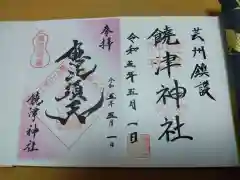 芸州鎮護
饒津神社
令和五年五月一日
奉拝
恵比須天
令和五年五月一日
饒津神社